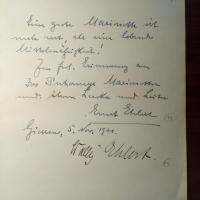 Eine gute Marionette ist
mehr wert, als eine lebende
Mittelmäßigkeit!
Zur frl. Erinnerung an
das Marionetten
und ihren Lenker und Leiter
Ernst Ehlert
Giessen, 5. Nov.
Wally Ehlert.